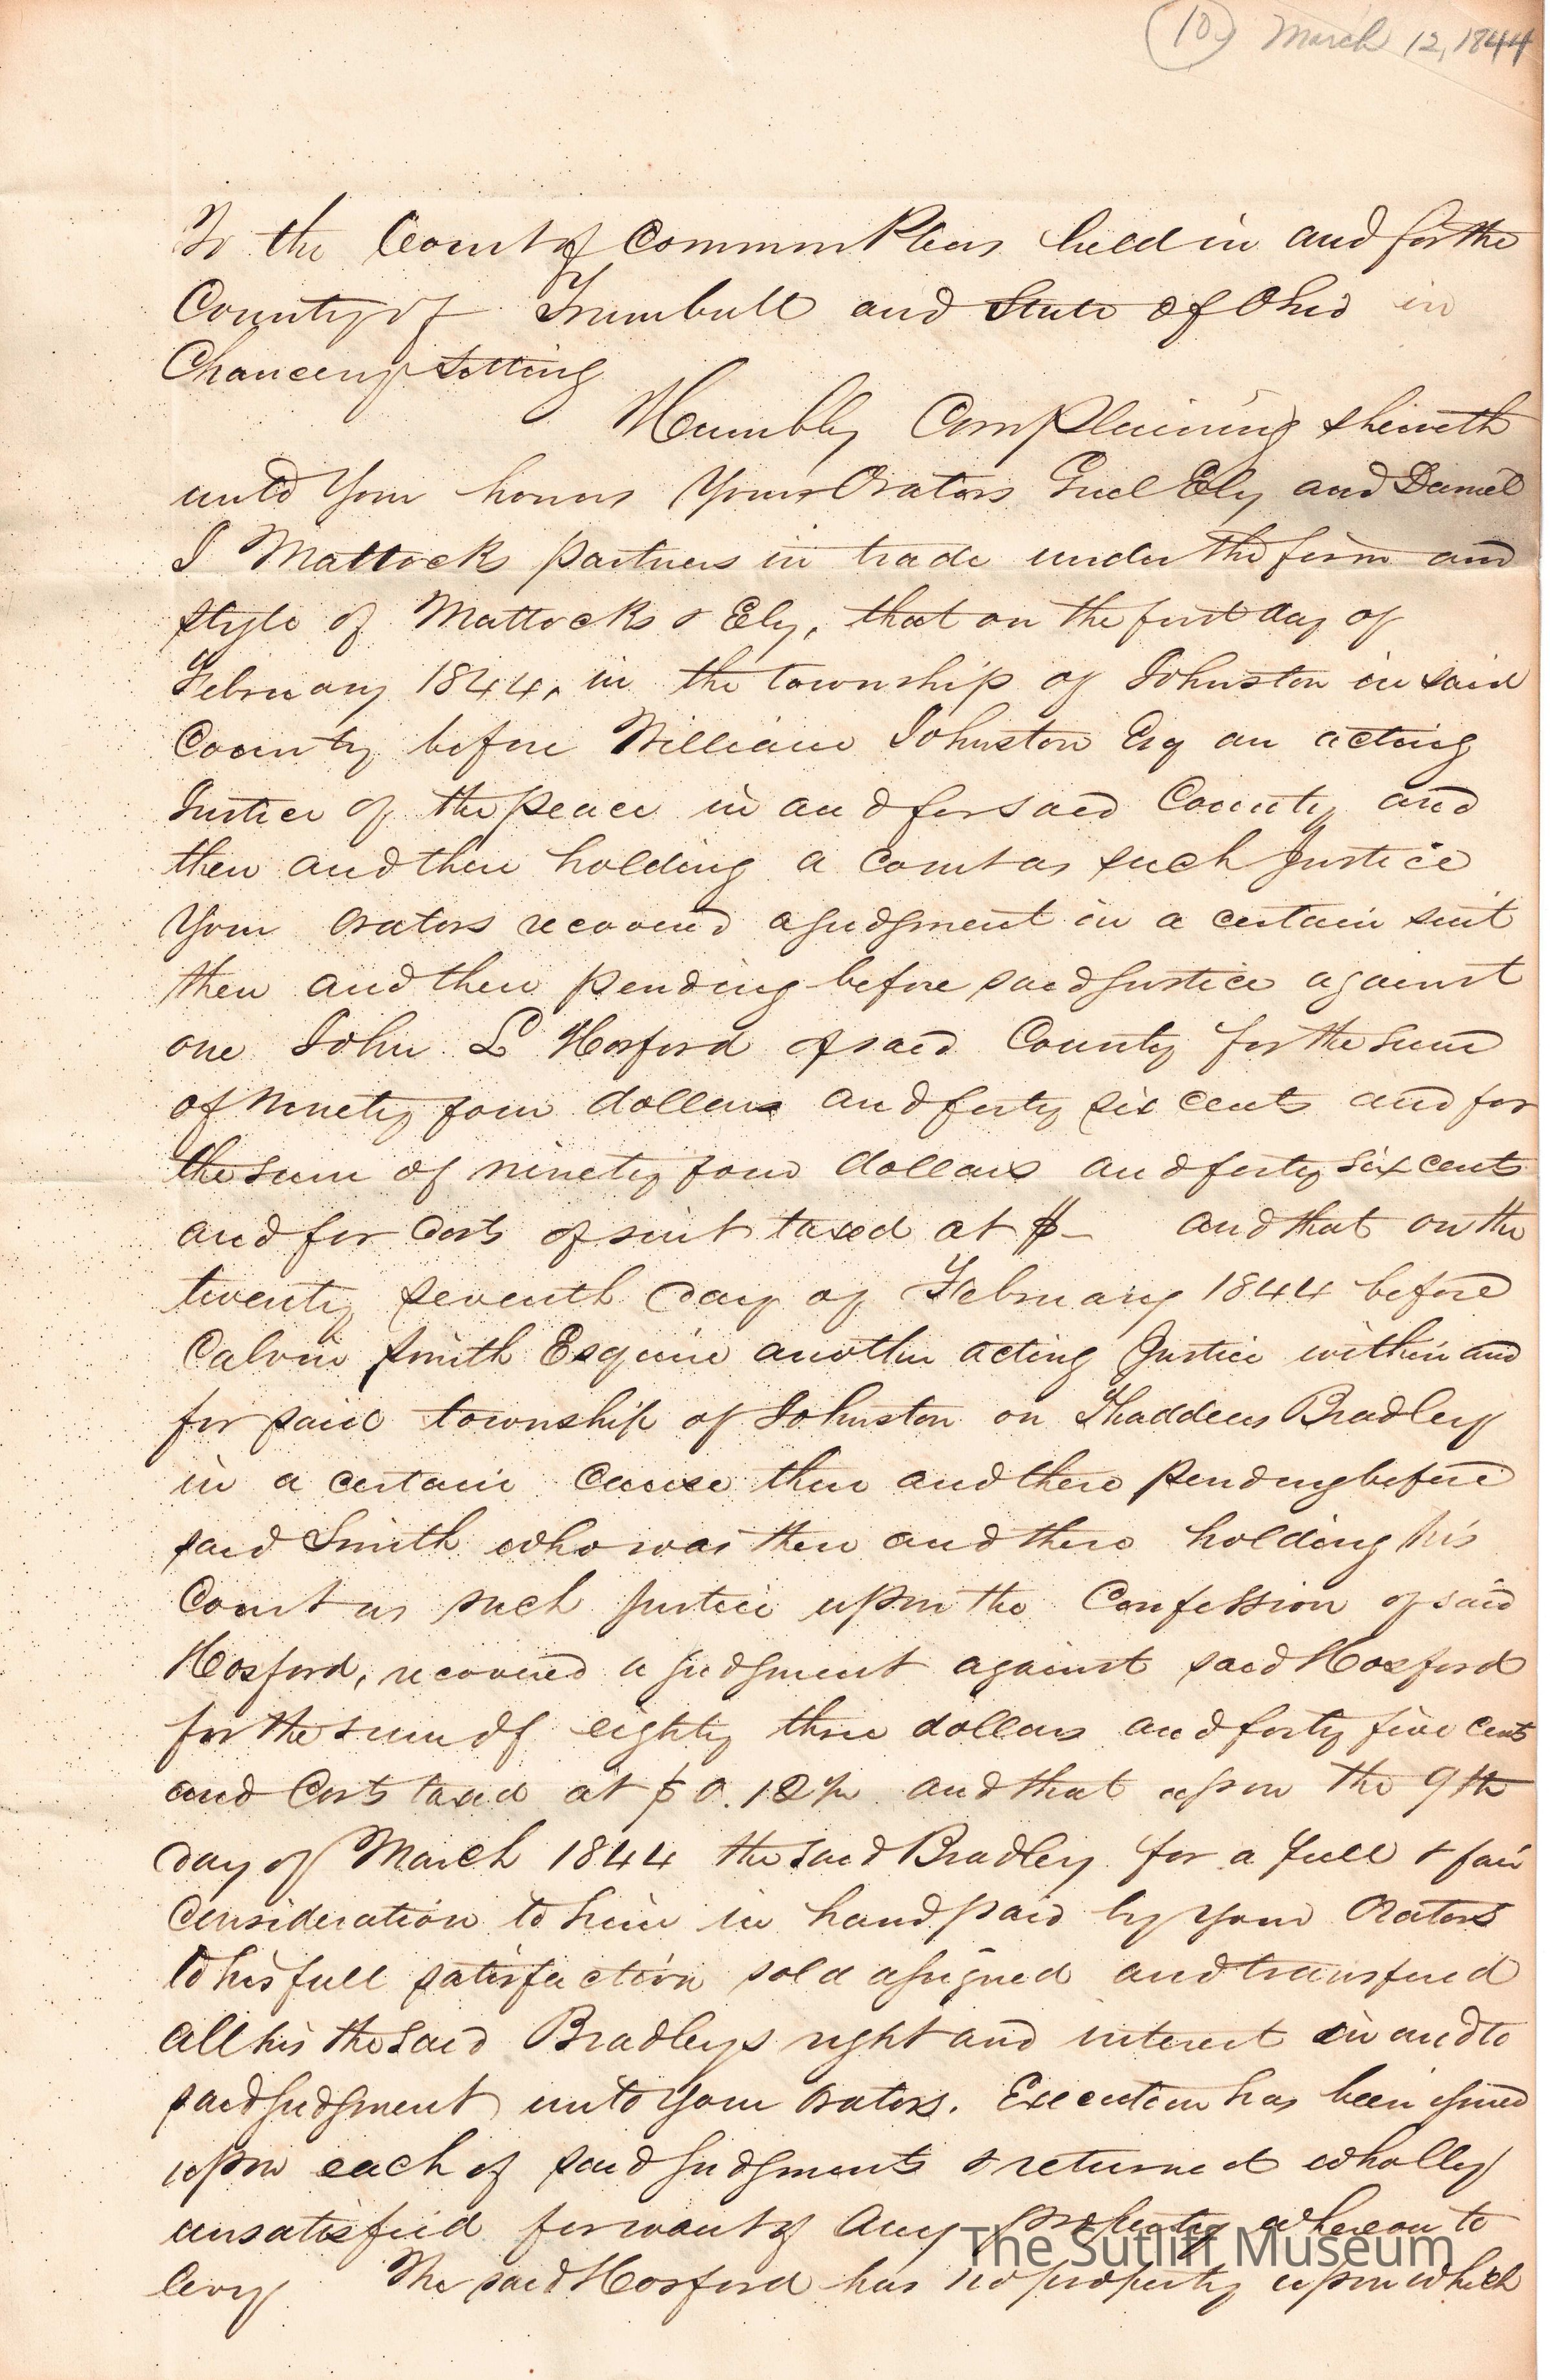 10 March 12, 1844
To the Court of Common Pleas held in and for the
County of Trumbull and State of Ohio in
Chancery sitting
Humbly Complaining sheweth
unto Your honors Your Orators Ely and Daniel
I Mattocks partners in trade under the firm and
style of Mattocks & Ely, that on the first day of
February 1844, in the township of Johnston in said
County before William Johnston Esq an acting
Justice of the peace in and for said County and
then and there holding a Court as such Justice
Your Orators recovered a judgment in a certain suit
then and there pending before said Justice against
one John L Hosford of said County for the sum
of ninety four dollars and forty six cents and for
the sum of ninety four dollars and forty six cents
and for costs of suit taxed at $— and that on the
twenty seventh day of February 1844 before
Calvin Smith Esquire another acting Justice within and
for said township of Johnston on Thaddeus Bradley
in a certain Cause then and there pending before
said Smith who was then and there holding his
Court as such Justice upon the Confession of said
Hosford, recovered a judgment against said Hosford
for the sum of eighty three dollars and forty five cents
and Costs taxed at $0. and that upon the 9th
day of March 1844 the said Bradley for a full & fair
Consideration to him in hand paid by your Orators
to his full satisfaction sold assigned and transfered
all his the said Bradleys right and interest in and to
said judgment unto your Orators. Execution has been issued
upon each of said judgments & returned wholly
unsatisfied for want of any property whereon to
levy. The said Hosford has no property upon which
The Sutliff Museum